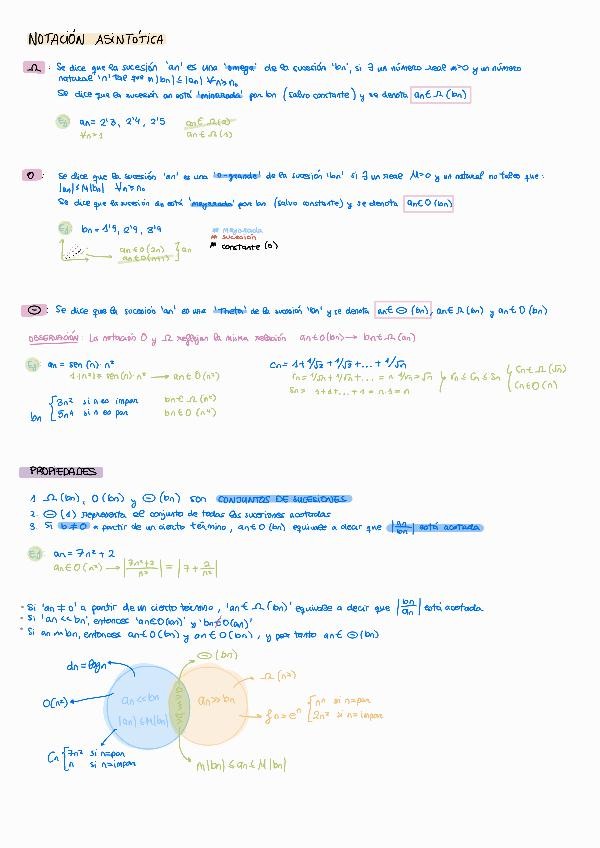 NOTACIÓN ASINTÓTICA
Ω : Se dice que la sucesión 'an' es una 'omega' de la sucesión 'bn', si ∃ un número real m>0 y un número
natural 'n' tal que m|bn| ≤ |an| ∀n>n₀
Se dice que la sucesión an está 'minorada' por bn (salvo constante) y se denota an ∈ Ω(bn)
Ej an = 2'3, 2'4, 2'5
∀n>1
an ∈ Ω(1)
O : Se dice que la sucesión 'an' es una 'o-grande' de la sucesión 'bn' si ∃ un real M>0 y un natural no tales que:
|an| ≤ M|bn| ∀n>n₀
Se dice que la sucesión an está 'mayorada' por bn (salvo constante) y se denota an ∈ O(bn)
Ej bn = 1'9, 2'9, 3'9
mayorada
sucesión
constante (0)
an ∈ O(2n)
an ∈ O(n+1)
an
Θ : Se dice que la sucesión 'an' es una 'Theta' de la sucesión 'bn' y se denota an ∈ Θ(bn), an ∈ Ω(bn) y an ∈ O(bn)
OBSERVACIÓN: La notación O y Ω reflejan la misma relación an ∈ O(bn) → bn ∈ Ω(an)
Ej an = sen(n)·n²
→ an ∈ O(n²)
bn { 3n² si n es impar
5n⁴ si n es par
bn ∈ Ω(n²)
bn ∈ O(n⁴)
Cn = 1 + 1/√2 + 1/√3 + ... + 1/√n
rn = 1/√n + 1/√n + ... = n·1/√n = √n
Sn = 1+1+...+1 = n·1 = n
rn ≤ Cn ≤ Sn
Cn ∈ Ω(√n)
Cn ∈ O(n)
PROPIEDADES
1. Ω(bn), O(bn) y Θ(bn) son CONJUNTOS DE SUCESIONES
2. Θ(1) representa el conjunto de todas las sucesiones acotadas
3. Si b ≠ 0 a partir de un cierto término, an ∈ O(bn) equivale a decir que |an/bn| está acotada
Ej: an = 7n² + 2
an ∈ O(n²) → |7n²+2/n²| = |7 + 2/n²|
• Si 'an ≠ 0' a partir de un cierto término, 'an ∈ Ω(bn)' equivale a decir que |bn/an| está acotada
• Si 'an << bn', entonces 'an ∈ O(bn)' y 'bn ∉ O(an)'
• Si an ≈ bn, entonces an ∈ O(bn) y an ∈ O(bn), y por tanto an ∈ Θ(bn)
Θ(bn)
dn = log n
Ω(n²)
O(n²)
an << bn
|an| ≤ M|bn|
an >> bn
fn = eⁿ { nⁿ si n=par
2n² si n=impar
Cn { 7n² si n=par
n si n=impar
m|bn| ≤ an ≤ M|bn|